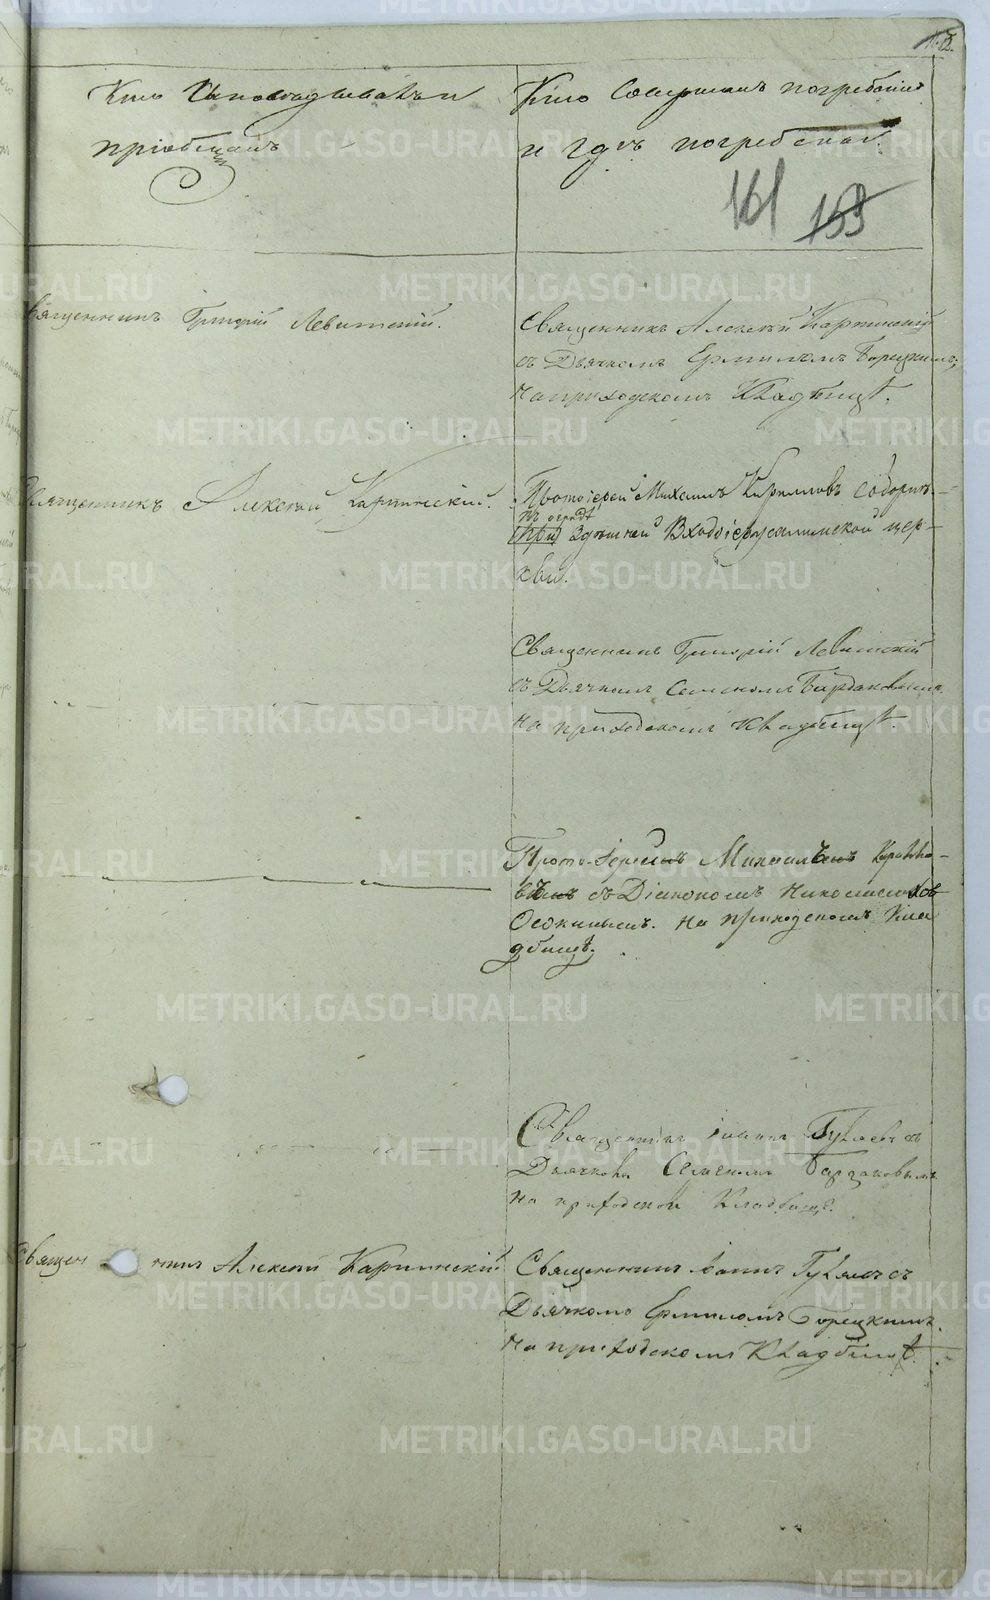 Кто исповѣдывалъ и
пріобщалъ
Кто совершалъ погребеніе
и гдѣ погребены.
161 153
Священникъ Григорій Левитскій.
Священникъ Алексѣй Карпинскій
съ Дьячкомъ Ермиломъ Борецкимъ;
На приходскомъ Кладбищѣ.
Священникъ Алексѣй Карпинскій.
Протоіерей Михаилъ Кириловъ соборнѣ
въ оградѣ
(при) Здѣшней Входоіерусалимской цер-
кви.
Священникъ Григорій Левитскій
съ Дьячкомъ Семеномъ Бардаковымъ
На приходскомъ Кладбищѣ.
Прото-Іерей Михаилъ Кирило-
въ съ Діакономъ Николаемъ
Осокинымъ. На приходскомъ Кла
дбищѣ.
Священникъ Іоаннъ Гуляевъ съ
Дьячкомъ Семеномъ Бардаковымъ
На приходскомъ Кладбищѣ.
Священникъ Алексѣй Карпинскій
Священникъ Іоаннъ Гуляевъ съ
Дьячкомъ Ермиломъ Борецкимъ.
На приходскомъ Кладбищѣ.
METRIKI.GASO-URAL.RU